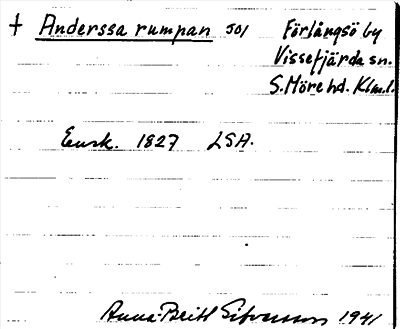 † Anderssa rumpan 501 Förlångsö by
Vissefjärda sn.
S. Möre hd. Klm.l.
Ensk. 1827 LSA.
Anna-Britt Sifversson 1941